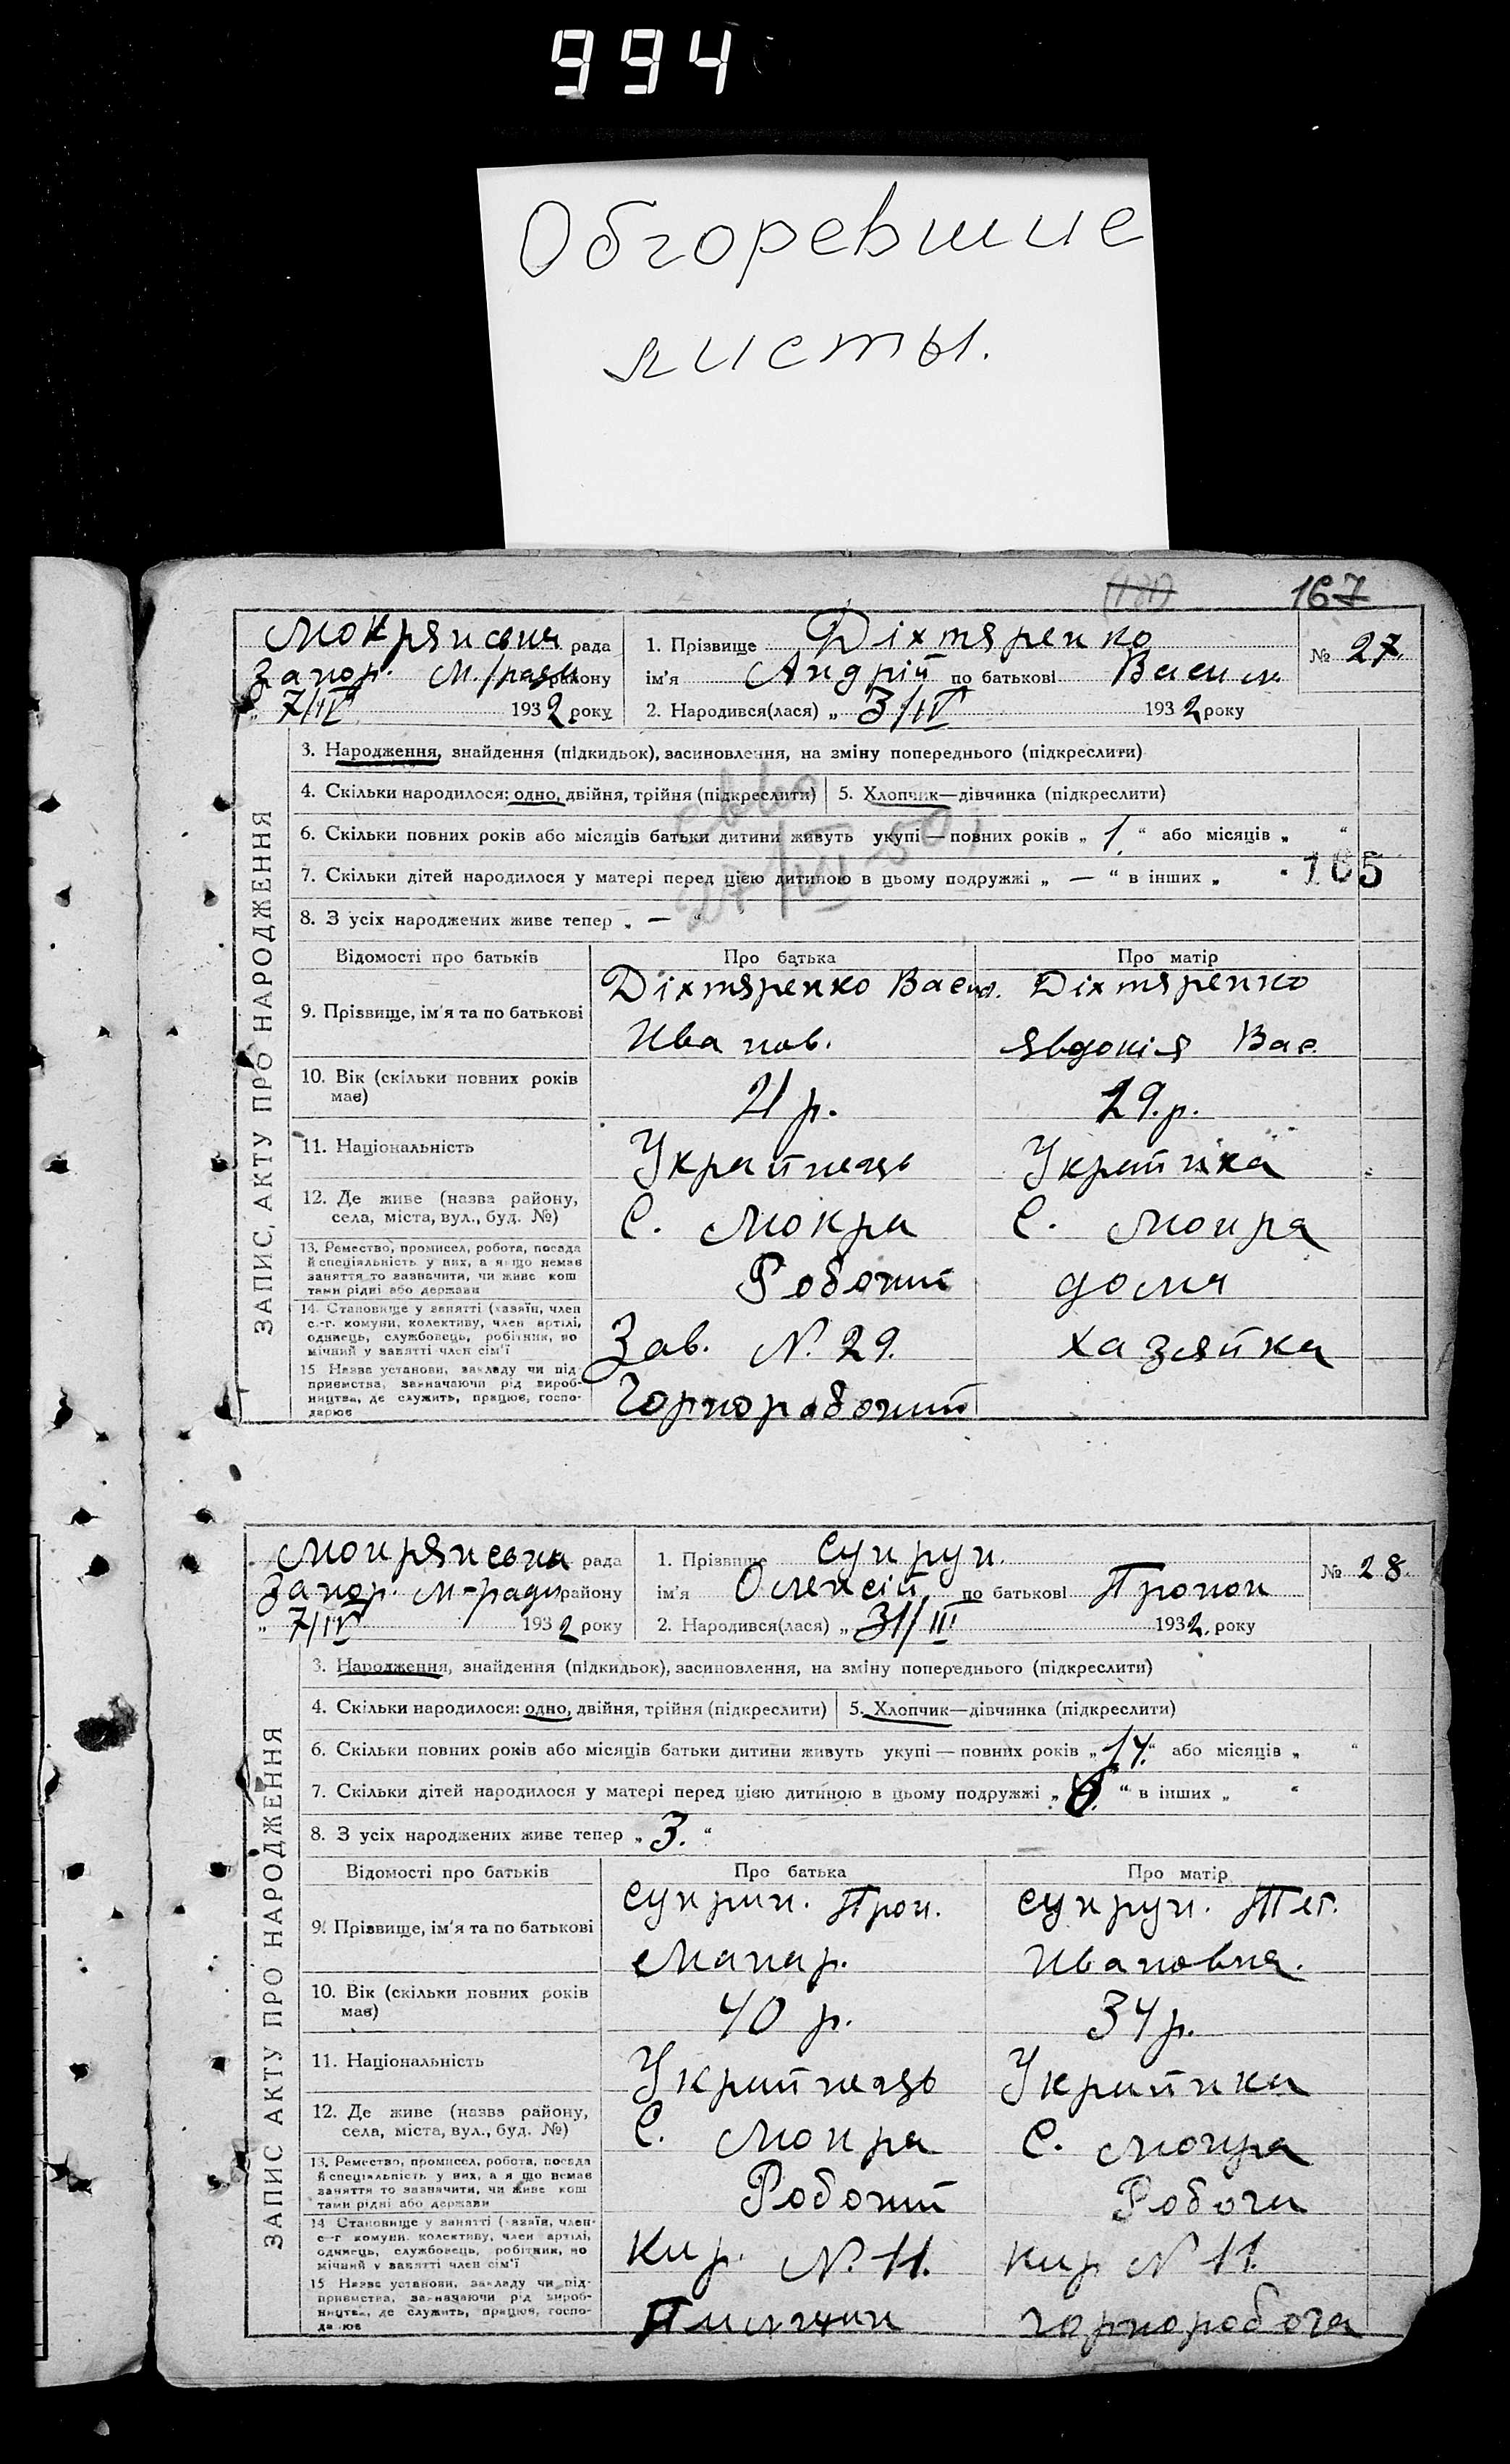 994
Обгоревшие
листы.
167
Мокрянська рада
Запор. М/ради району
„ 7/IV 1932 року
1. Прізвище Діхтяренко
ім'я Андрій по батькові Васил.
№ 27.
2. Народився(лася) „ 3/IV 1932 року
ЗАПИС АКТУ ПРО НАРОДЖЕННЯ
3. Народження, знайдення (підкидьок), засиновлення, на зміну попереднього (підкреслити)
4. Скільки народилося: одно, двійня, трійня (підкреслити) 5. Хлопчик—дівчинка (підкреслити)
6. Скільки повних років або місяців батьки дитини живуть укупі — повних років „ 1. “ або місяців „ “
7. Скільки дітей народилося у матері перед цією дитиною в цьому подружжі „ — “ в інших „
165
8. З усіх народжених живе тепер „ — “
27/VII-50
Відомості про батьків Про батька Про матір
9. Прізвище, ім'я та по батькові
Діхтяренко Васил. Діхтяренко
Ива нов. Явдокія Вас.
10. Вік (скільки повних років має)
21 р. 19. р.
11. Національність
Українець Українка
12. Де живе (назва району, села, міста, вул., буд. №)
С. Мокра С. Мокра
13. Ремество, промисел, робота, посада й спеціяльність у них, а якщо немає заняття то зазначити, чи живе кош тами рідні або держави
Робочий домя
14. Становище у занятті (хазяїн, член с.-г. комуни, колективу, член артілі, одинець, службовець, робітник, по мічний у занятті член сім'ї
Зав. N. 29. хазяйка
15 Назва установи, закладу чи під приємства, зазначаючи рід вироб-ництва, де служить, працює, госпо-дарює
Чорноробочий
Мокрянська рада
Запор. М-ради району
„ 7/IV 1932 року
1. Прізвище Супрун.
ім'я Олексій по батькові Прокоп
№ 28.
2. Народився(лася) „ 31/III 1932. року
ЗАПИС АКТУ ПРО НАРОДЖЕННЯ
3. Народження, знайдення (підкидьок), засиновлення, на зміну попереднього (підкреслити)
4. Скільки народилося: одно, двійня, трійня (підкреслити) 5. Хлопчик—дівчинка (підкреслити)
6. Скільки повних років або місяців батьки дитини живуть укупі — повних років „ 14. “ або місяців „ “
7. Скільки дітей народилося у матері перед цією дитиною в цьому подружжі „ “ в інших „ “
8. З усіх народжених живе тепер „ 3. “
Відомості про батьків Про батька Про матір
9. Прізвище, ім'я та по батькові
Супрун. Прок. Супрун. Тет.
Макар. Ивановна.
10. Вік (скільки повних років має)
40 р. 34 р.
11. Національність
Українець Українка
12. Де живе (назва району, села, міста, вул., буд. №)
С. Мокра С. Мокра
13. Ремество, промисел, робота, посада й спеціяльність у них, а я що немає заняття то зазначити, чи живе кош тами рідні або держави
Робочий Робоча
14 Становище у занятті (хазяїн, член-с-г комуни, колективу, член артілі, одинець, службовець, робітник, по мічний у занятті член сім'ї
Кир. N. 11. Кир N 11.
15 Назва установи, закладу чи під-приємства, зазначаючи рід вироб-ництва, де служить, працює, госпо-да ює
чорноробоча